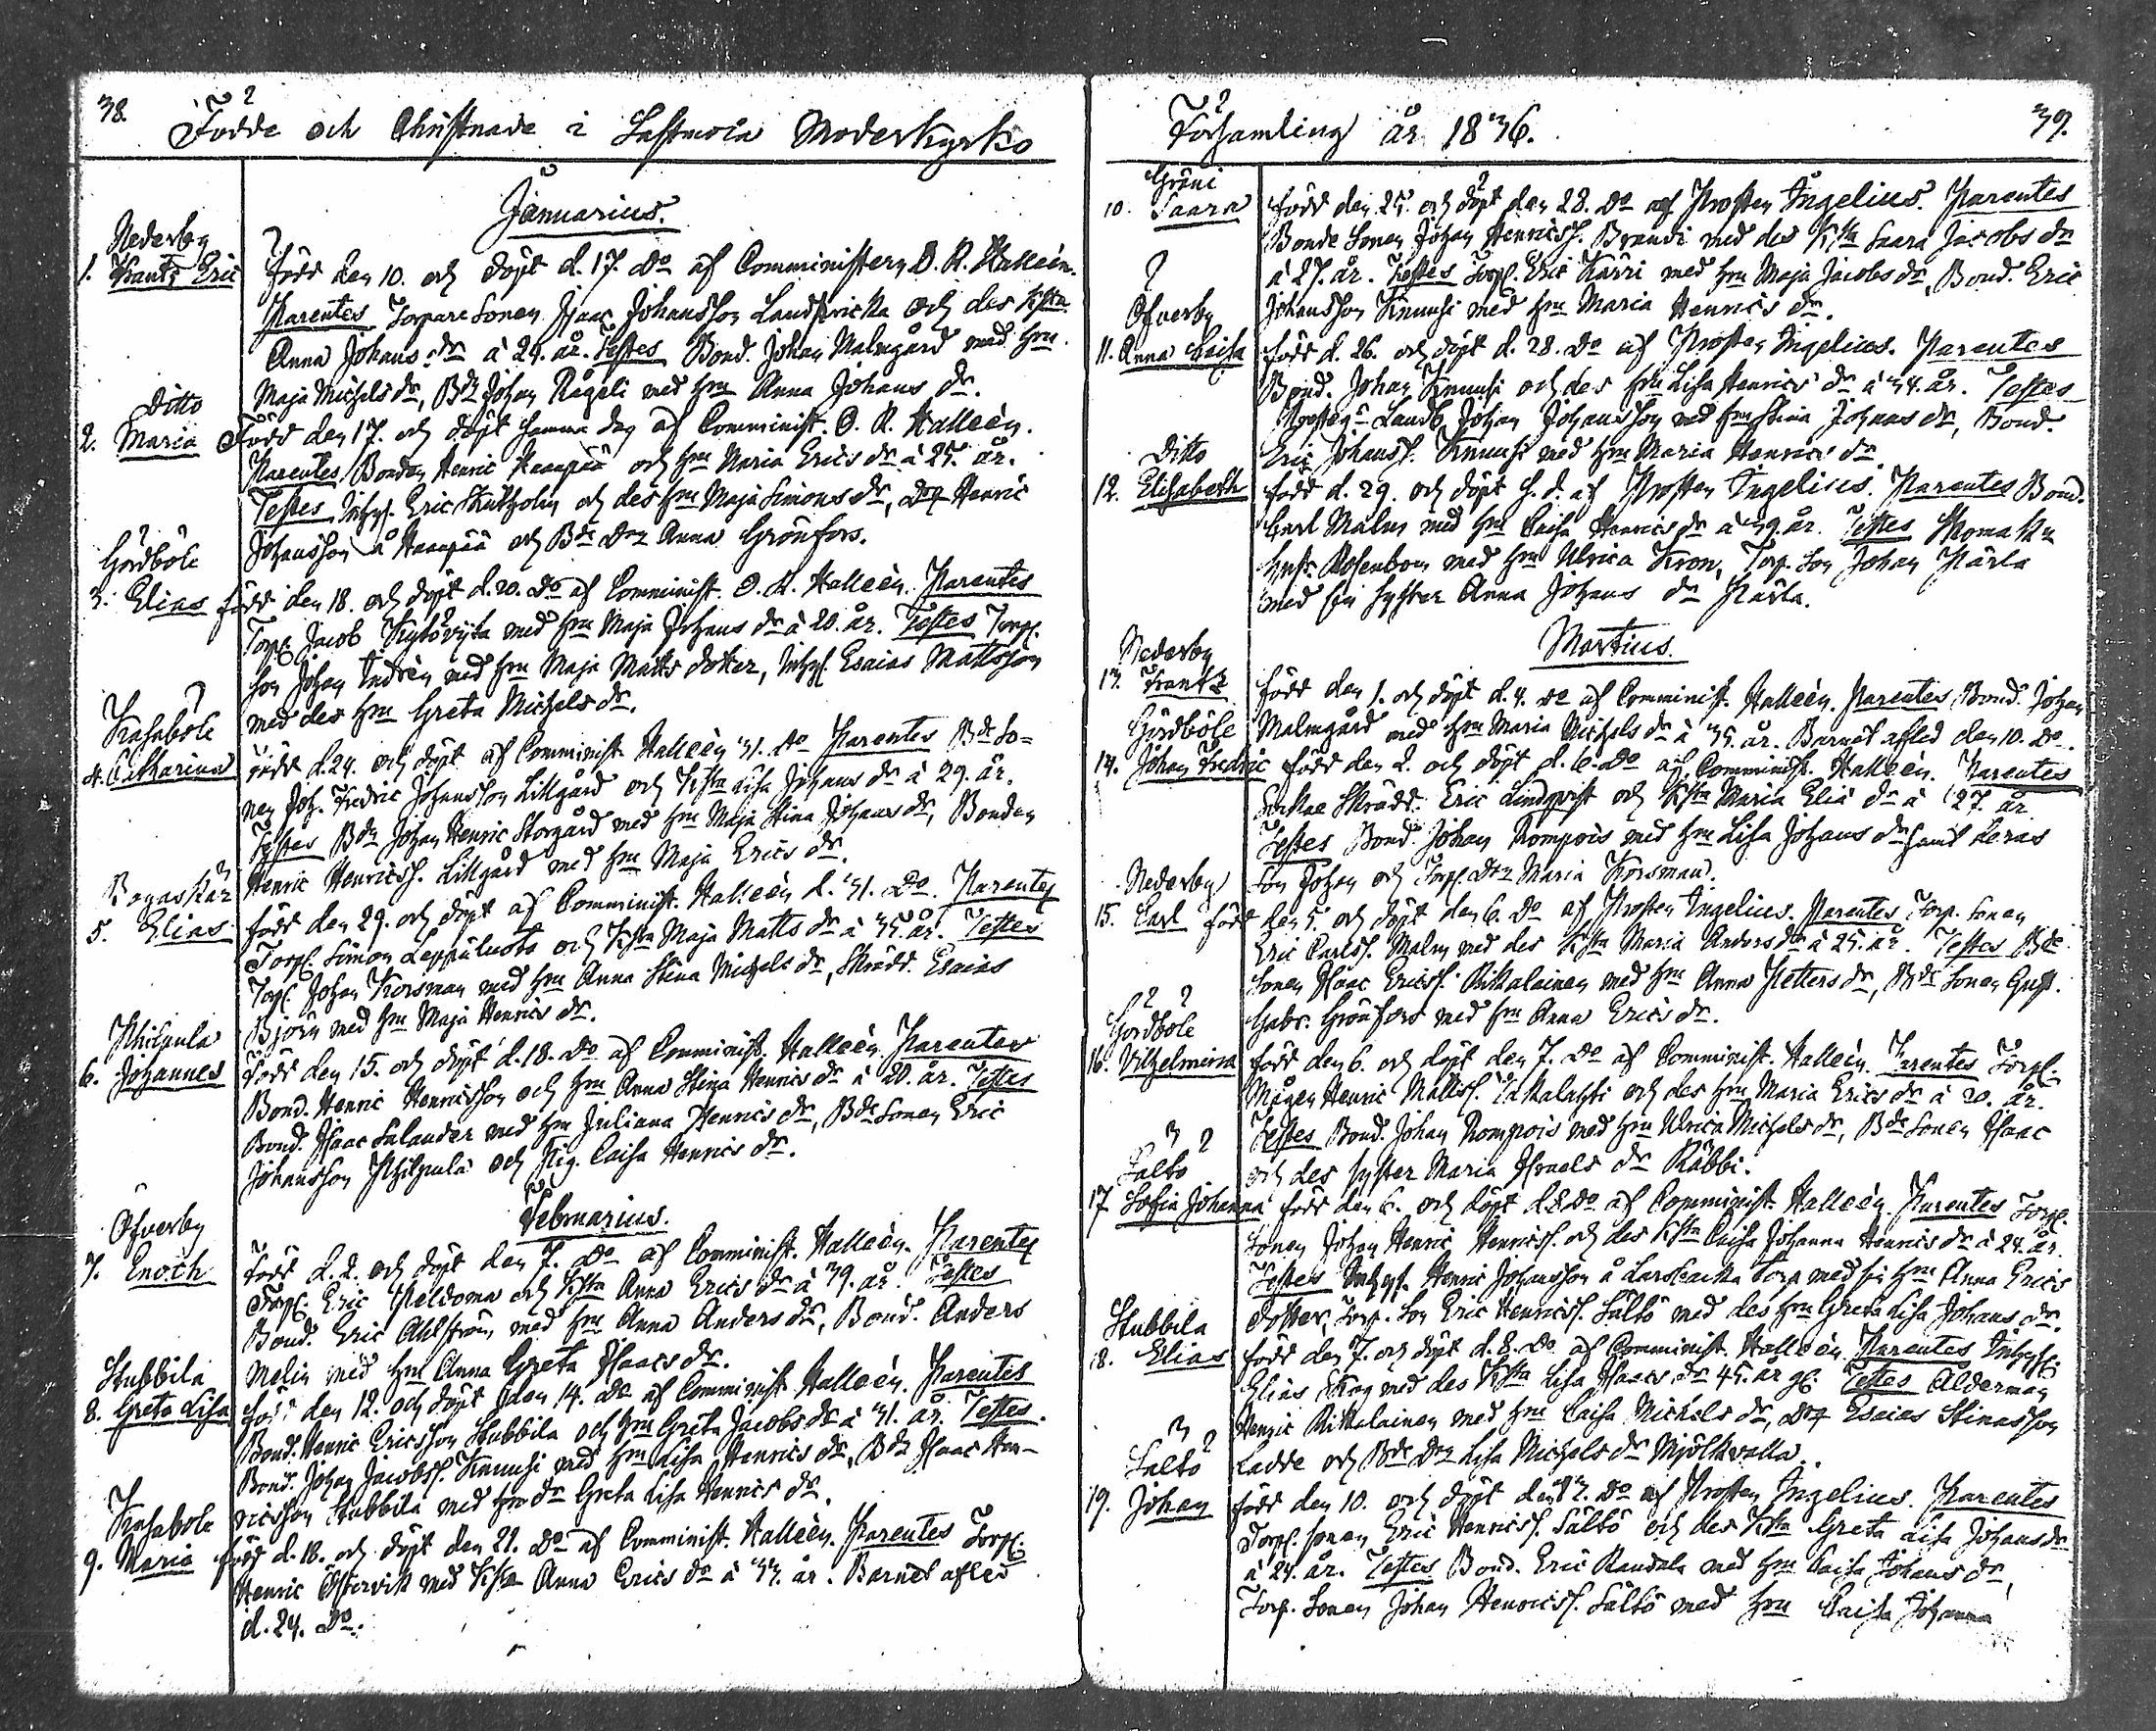 38.
Födde och Christnade i Lastmola Moderkyrko
Januarius.
Nederby
1. Frantz Eric
född den 10. och döpt d. 17. do af Comministern O. R. Halleèn.
Parentes Torpare Sonen Isaac Johansson Landstricka och des Hsta
Anna Johans dr à 29. år. Testes Bond. Johan Malmgård med Hru
Maja Michels dr, Bdn Johan Rageli med Hru Anna Johans dr.
Ditto
2. Maria
Född den 17. och döpt samma dag af Comminist. O. R. Halleèn.
Parentes Bonden Henric Haanpää och Hru Maria Erics dr à 25. år.
Testes Inhys. Eric och des Hru Maja Simons dr, Drg Henric
Johansson å Haanpää och Bde Dr Anna Grönfors.
Gördböle
3. Elias
född den 18. och döpt d. 20. do af Comminist. O. R. Halleèn. Parentes
Torp. Jacob med Hru Maja Johans dr à 20. år. Testes Torp.
Son Johan Andrèn med Hru Maja Matts dotter, Inhys. Esaias Mattsson
med des Hru Greta Michels dr.
Kasaböle
4. Catharina
född d. 24. och döpt af Comminist. Halleèn 31. do Parentes Bde So-
nen Joh. Fredric Johansson Lillgård och Hsta Lisa Johans dr à 29. år.
Testes Bdn Johan Henric Storgård med Hru Maja Stina Johans dr, Bonden
Henric Henricss. Lillgård med Hru Maja Erics dr.
5. Elias
född den 29. och döpt af Comminist. Halleèn d. 31. do. Parentes
Torp. Simon Leppäluoto och Hsta Maja Matts dr à 35. år. Testes
Torp. Johan Korsman med Hru Anna Stina Michels dr, Skrädd. Esaias
Björn med Hru Maja Henrics dr.
Philpula
6. Johannes
född den 15. och döpt d. 18. do af Comminist. Halleèn. Parentes
Bond. Henric Henricsson och Hru Anna Stina Henrics dr à 20. år. Testes
Bond. Isaac Salander med Hru Juliana Henrics dr, Bde Sonen Eric
Johansson Philpula och Pig. Caisa Henrics dr.
Februarius.
Öfverby
7. Enoch
född d. 2. och döpt den 7. do af Comminist. Halleèn. Parentes
Torp. Eric Peldoma och Hsta Anna Erics dr à 39. år. Testes
Bond. Eric Ahlström med Hru Anna Anders dr, Bond. Anders
Melin med Hru Anna Greta Isaacs dr.
Stubbila
8. Greta Lisa
född den 12. och döpt den 14. do af Comminist. Halleèn. Parentes
Bond. Henric Ericsson Stubbila och Hru Greta Jacobs dr à 31. år. Testes
Bond. Johan Jacobss. Knuusi med Hru Lisa Henrics dr, Bdn Isaac Hen-
ricsson Stubbila med Hru dr Greta Lisa Henrics dr.
Kasaböle
9. Maria
född d. 18. och döpt den 21. do af Comminist. Halleèn. Parentes Torp.
Henric Östervik med Hsta Anna Erics dr à 33. år. Barnet afled
d. 24. do.
Församling år 1836.
39.
Gröni
10. Saara
född den 25. och döpt den 28. do af Prosten Ingelius. Parentes
Bonde Sonen Johan Henricss. Brandi med des Hsta Saara Jacobs dr
à 27. år. Testes Torp. Eric Kärri med Hru Maja Jacobs dr, Bond. Eric
Johansson Knuusi med Hru Maria Henrics dr.
Öfverby
11. Anna Caisa
född d. 26. och döpt d. 28. do af Prosten Ingelius. Parentes
Bond. Johan Knuusi och des Hru Lisa Henrics dr à 34. år. Testes
Landb. Johan Johansson med Hru Stina Johans dr, Bond.
Eric Johanss. Knuusi med Hru Maria Henrics dr.
Ditto
12. Elisabeth
född d. 29. och döpt s. d. af Prosten Ingelius. Parentes Bond.
Carl Malm med Hru Caisa Henrics dr à 39. år. Testes
Gust. Rosenbom med Hru Ulrica Kron, Torp. Son Johan Pärla
med sin syster Anna Johans dr Pärla.
Martius.
Nederby
13. Frantz
född den 1. och döpt d. 4. do af Comminist. Halleèn. Parentes Bond. Johan
Malmgård med Hru Maria Michels dr à 35. år. Barnet afled den 10. do.
Gördböle
14. Johan Fredric
född den 2. och döpt d. 6. do af Comminist. Halleèn. Parentes
Skrädd. Eric Lindqvist och Hsta Maria Eliæ dr à 27. år
Testes Bond. Johan Rompois med Hru Lisa Johans dr samt deras
Son Johan och Torp. Dr Maria Korsman.
Nederby
15. Carl
född den 5. och döpt den 6. do af Prosten Ingelius. Parentes Torp. Sonen
Eric Carlss. Malm med des Hsta Maria Anders dr à 25. år. Testes Bde
Sonen Isaac Ericss. Rikalainen med Hru Anna Petters dr, Bde Sonen Gust.
Gabr. Grönfors med Hru Anna Erics dr.
Gördböle
16. Vilhelmina
född den 6. och döpt den 7. do af Comminist. Halleèn. Parentes Torp.
Mågen Henric Mattss. och des Hru Maria Erics dr à 20. år.
Testes Bond. Johan Rompois med Hru Ulrica Michels dr, Bde Sonen Isaac
och des syster Maria Israels dr Räbbi.
Saltö
17. Sofia Johanna
född den 6. och döpt d. 8. do af Comminist. Halleèn. Parentes Torp.
Sonen Johan Henric Henricss. och des Hsta Caisa Johanna Henrics dr à 24. år.
Testes Inhys. Henric Johansson å Torp med sin Hru Anna Erics
Dotter, Torp. Son Eric Henricss. Saltö med des Hru Greta Lisa Johans dr.
Stubbila
18. Elias
född den 7. och döpt d. 8. do af Comminist. Halleèn. Parentes Inhyst.
Elias Skog med des Hsta Lisa Isaacs dr 45. år gl. Testes Ålderman
Henric Rikalainen med Hru Caisa Michels dr, Drg Esaias Stinasson
Ladde och Bde Dr Lisa Michels dr Mjölkvalla.
Saltö
19. Johan
född den 10. och döpt den 12. do af Prosten Ingelius. Parentes
Torp. sonen Eric Henricss. Saltö och des Hsta Greta Lisa Johans dr
à 24. år. Testes Bond. Eric Randala med Hru Caisa Johans dr,
Torp. Sonen Johan Henricss. Saltö med Hru Caisa Johanna